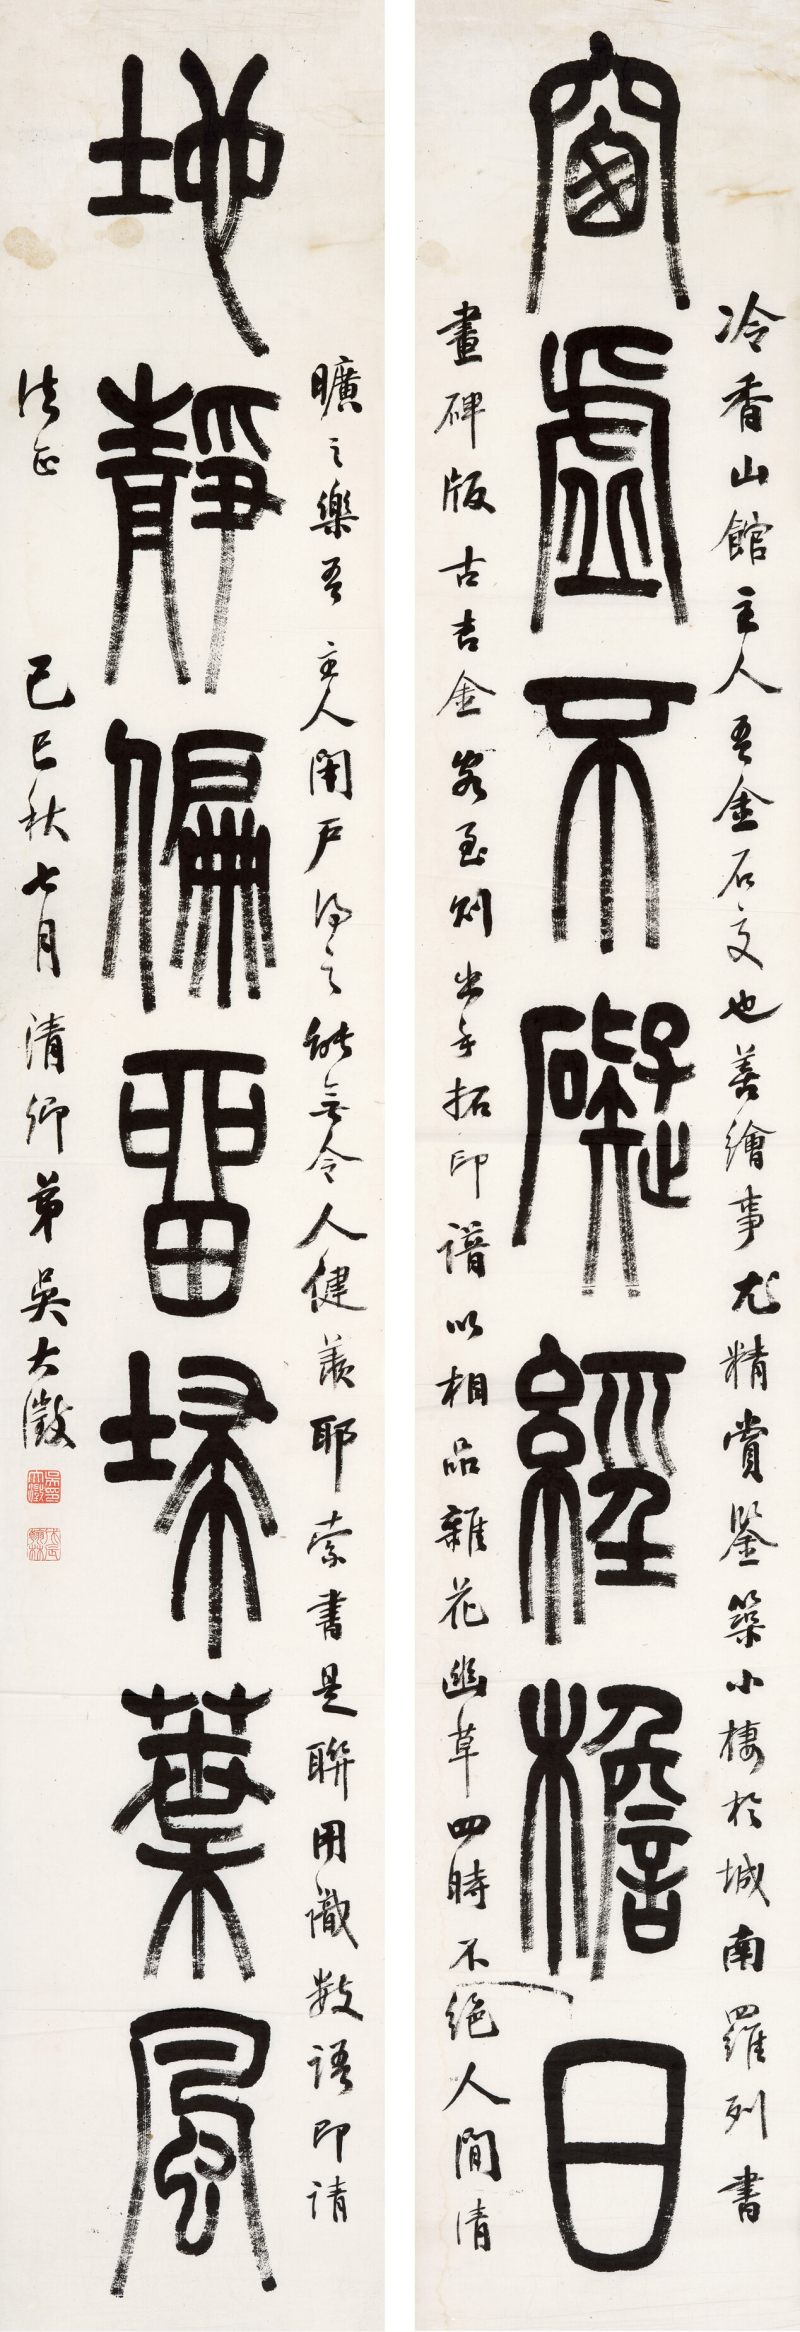 窗虛不礙經檐日
冷香山館主人吾金石交也善繪事尤精賞鑒築小棲於城南羅列書
畫碑版古吉金客至則出手拓印譜以相品雜花幽草四時不絕人間清
地靜偏留埽葉風
曠之樂吾主人閉戶得之能無令人健羨耶索書是聯用識數語即請
法正
己巳秋七月清卿弟吳大澂